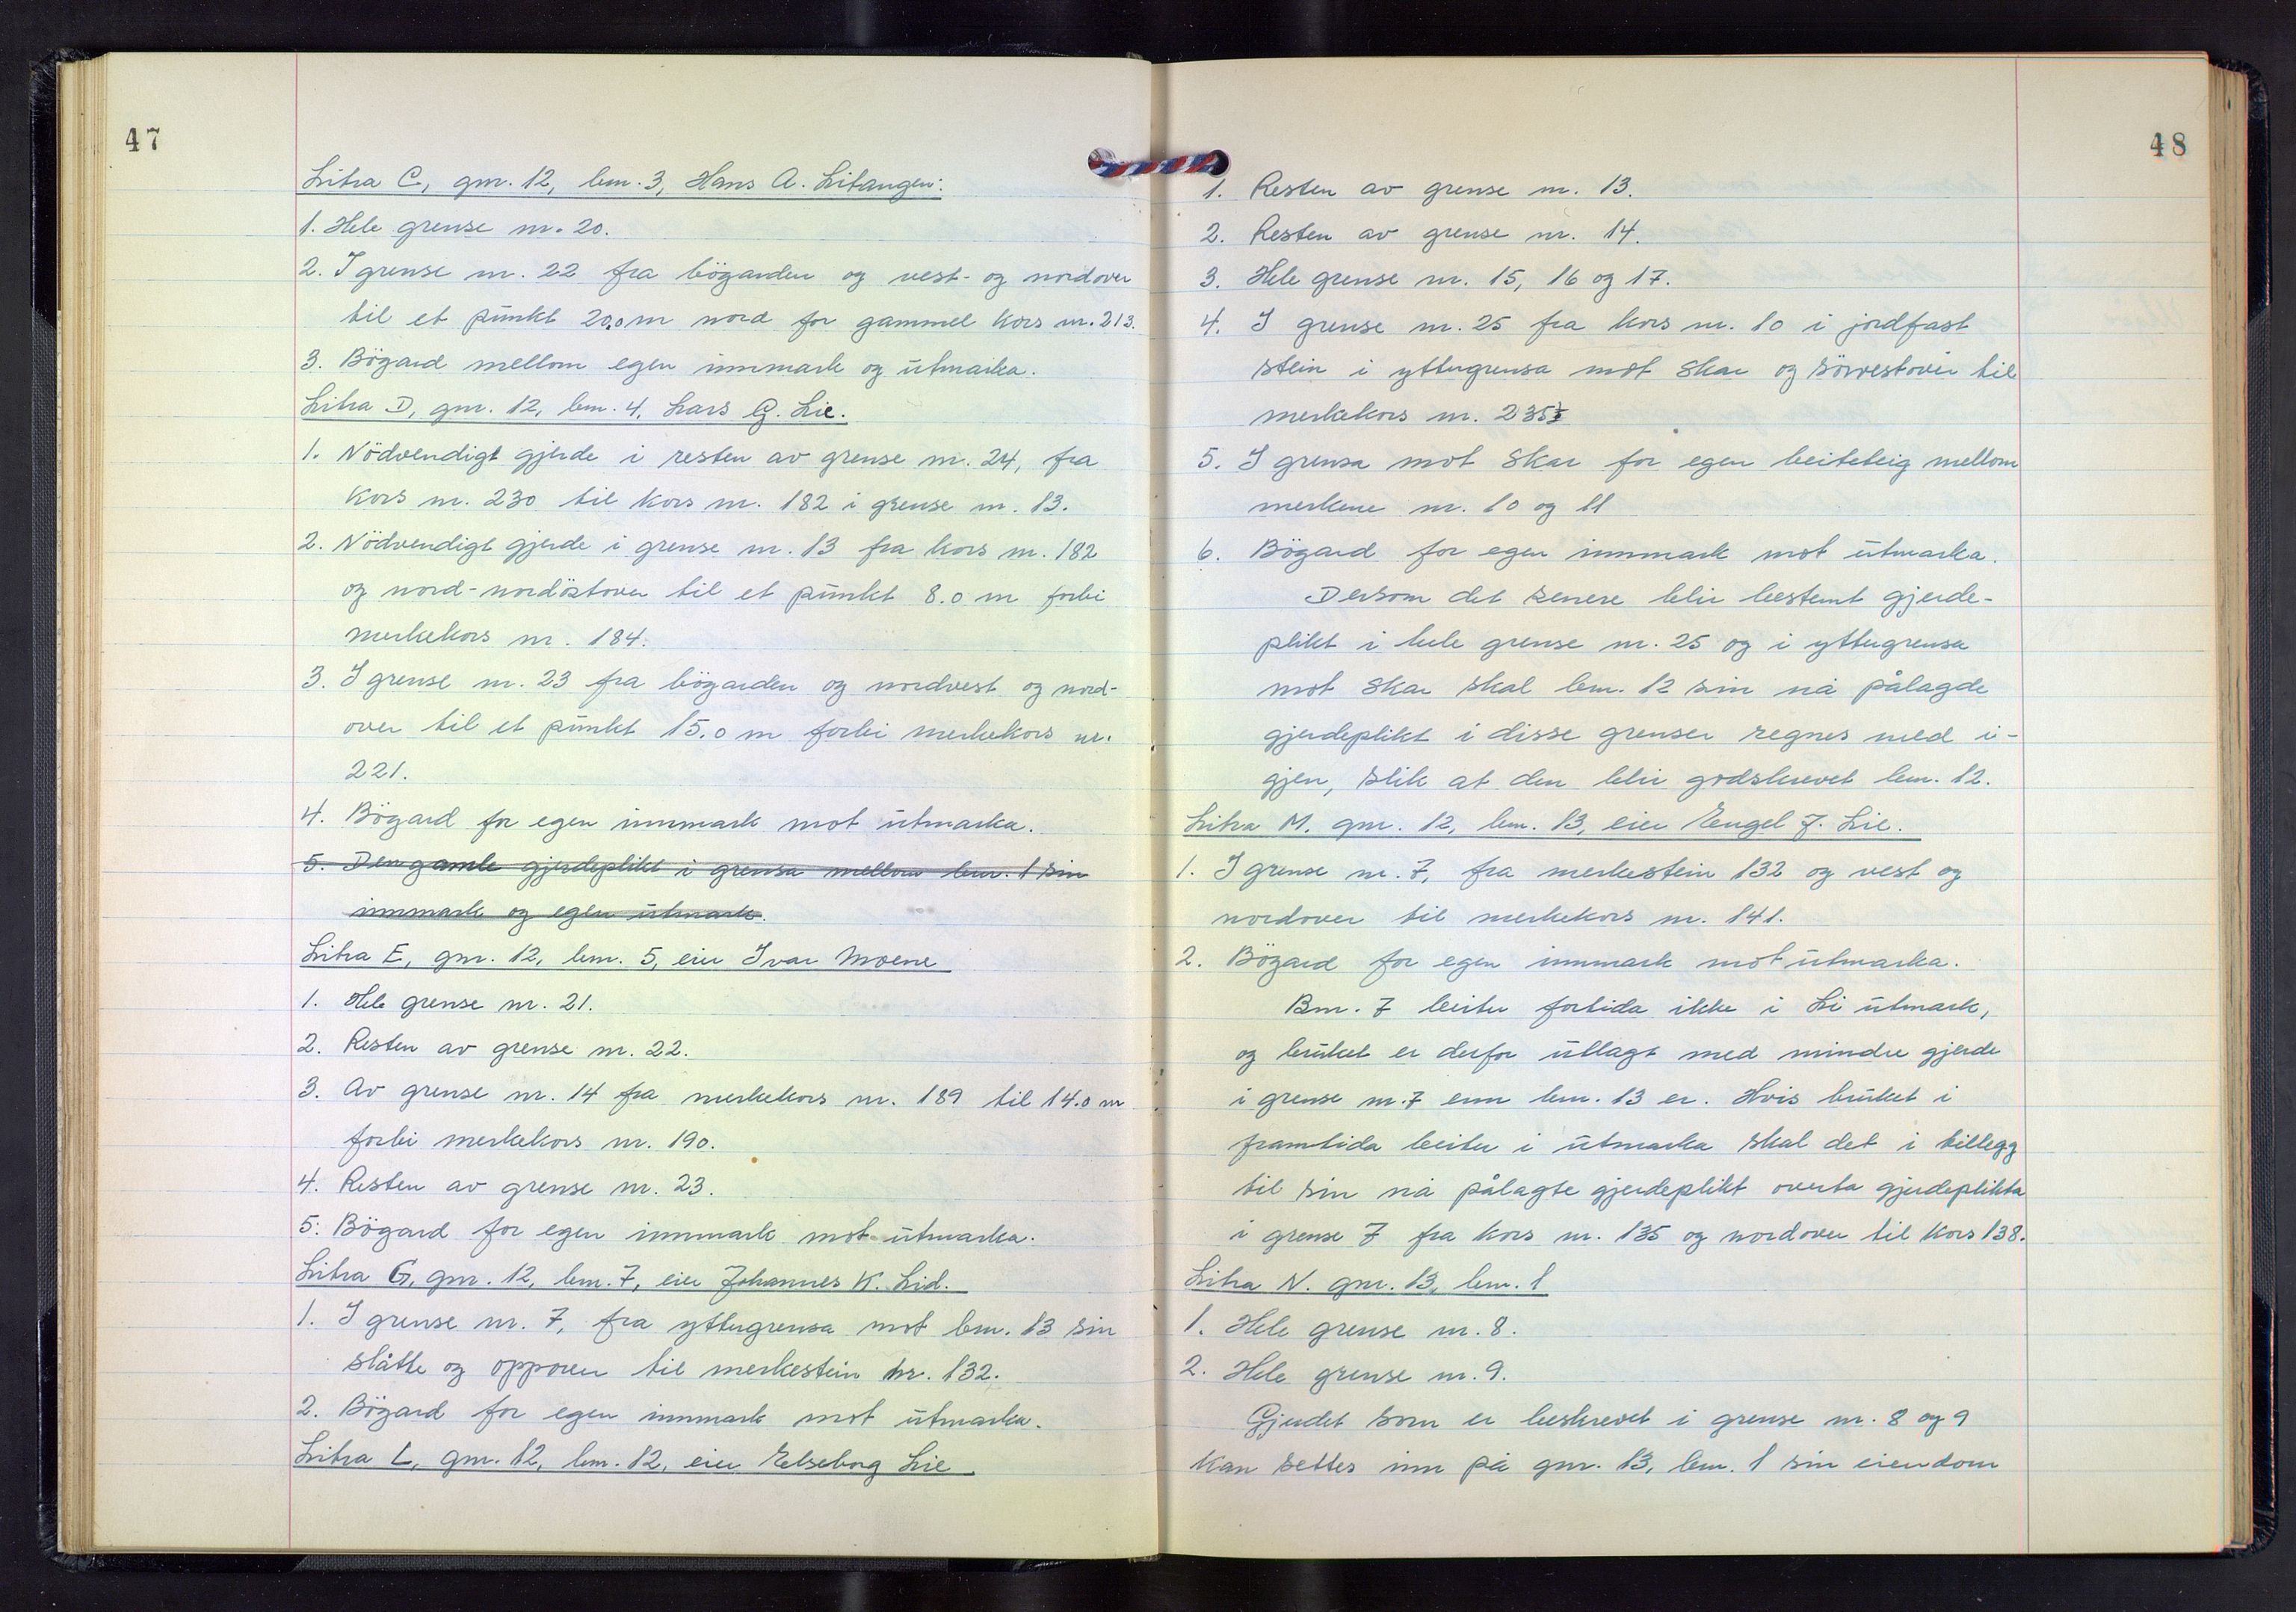 47
Litra C, gnr. 12, bnr. 3, Hans A. Litangen:
1. Hele grense nr. 20.
2. I grense nr. 22 fra bögarden og vest- og nordover
til et punkt 20,0 m nord for gammel kors nr. 213.
3. Bögard mellom egen innmark og utmarka.
Litra D, gnr. 12, bnr. 4, Lars G. Lie.
1. Nödvendigt gjerde i resten av grense nr. 24, fra
kors nr. 230 til kors nr. 182 i grense nr. 13.
2. Nödvendigt gjerde i grense nr. 13 fra kors nr. 182
og nord-nordöstover til et punkt 8.0 m forbi
merkekors nr. 184.
3. I grense nr. 23 fra bögarden og nordvest og nord-
over til et punkt 15.0 m forbi merkekors nr.
221.
4. Bögard for egen innmark mot utmarka.
5. Den gamle gjerdeplikt i grensa mellom bnr. 1 sin
innmark og egen utmark.
Litra E, gnr. 12, bnr. 5, eier Ivar Moene
1. Hele grense nr. 21.
2. Resten av grense nr. 22.
3. Av grense nr. 14 fra merkekors nr. 189 til 14.0 m
forbi merkekors nr. 190.
4. Resten av grense nr. 23.
5. Bögard for egen innmark mot utmarka.
Litra G, gnr. 12, bnr. 7, eier Johannes K. Lid.
1. I grense nr. 7, fra yttergrensa mot bnr. 13 sin
slåtte og oppover til merkestein nr. 132.
2. Bögard for egen innmark mot utmarka.
Litra L, gnr. 12, bnr. 12, eier Elseborg Lie
48
1. Resten av grense nr. 13.
2. Resten av grense nr. 14.
3. Hele grense nr. 15, 16 og 17.
4. I grense nr. 25 fra kors nr. 10 i jordfast
stein i yttergrensa mot Skar og sörvestover til
merkekors nr. 235
5. I grensa mot Skar for egen beiteteig mellom
merkene nr. 10 og 11
6. Bögard for egen innmark mot utmarka.
Dersom det senere blir bestemt gjerde-
plikt i hele grense nr. 25 og i yttergrensa
mot Skar skal bnr. 12 sin nå pålagde
gjerdeplikt i disse grenser regnes med i-
gjen, slik at den blir godskrevet bnr. 12.
Litra M. gnr. 12, bnr. 13, eier Engel J. Lie.
1. I grense nr. 7, fra merkestein 132 og vest og
nordover til merkekors nr. 141.
2. Bögard for egen innmark mot utmarka.
Bnr. 7 beiter fortida ikke i Li utmark,
og bruket er derfor utlagt med mindre gjerde
i grense nr. 7 enn bnr. 13 er. Hvis bruket i
framtida beiter i utmarka skal det i tillegg
til sin nå pålagte gjerdeplikt overta gjerdeplikta
i grense 7 fra kors nr. 135 og nordover til kors 138.
Litra N. gnr. 13, bnr. 1
1. Hele grense nr. 8.
2. Hele grense nr. 9.
Gjerdet som er beskrevet i grense nr. 8 og 9
kan settes inn på gnr. 13, bnr. 1 sin eiendom